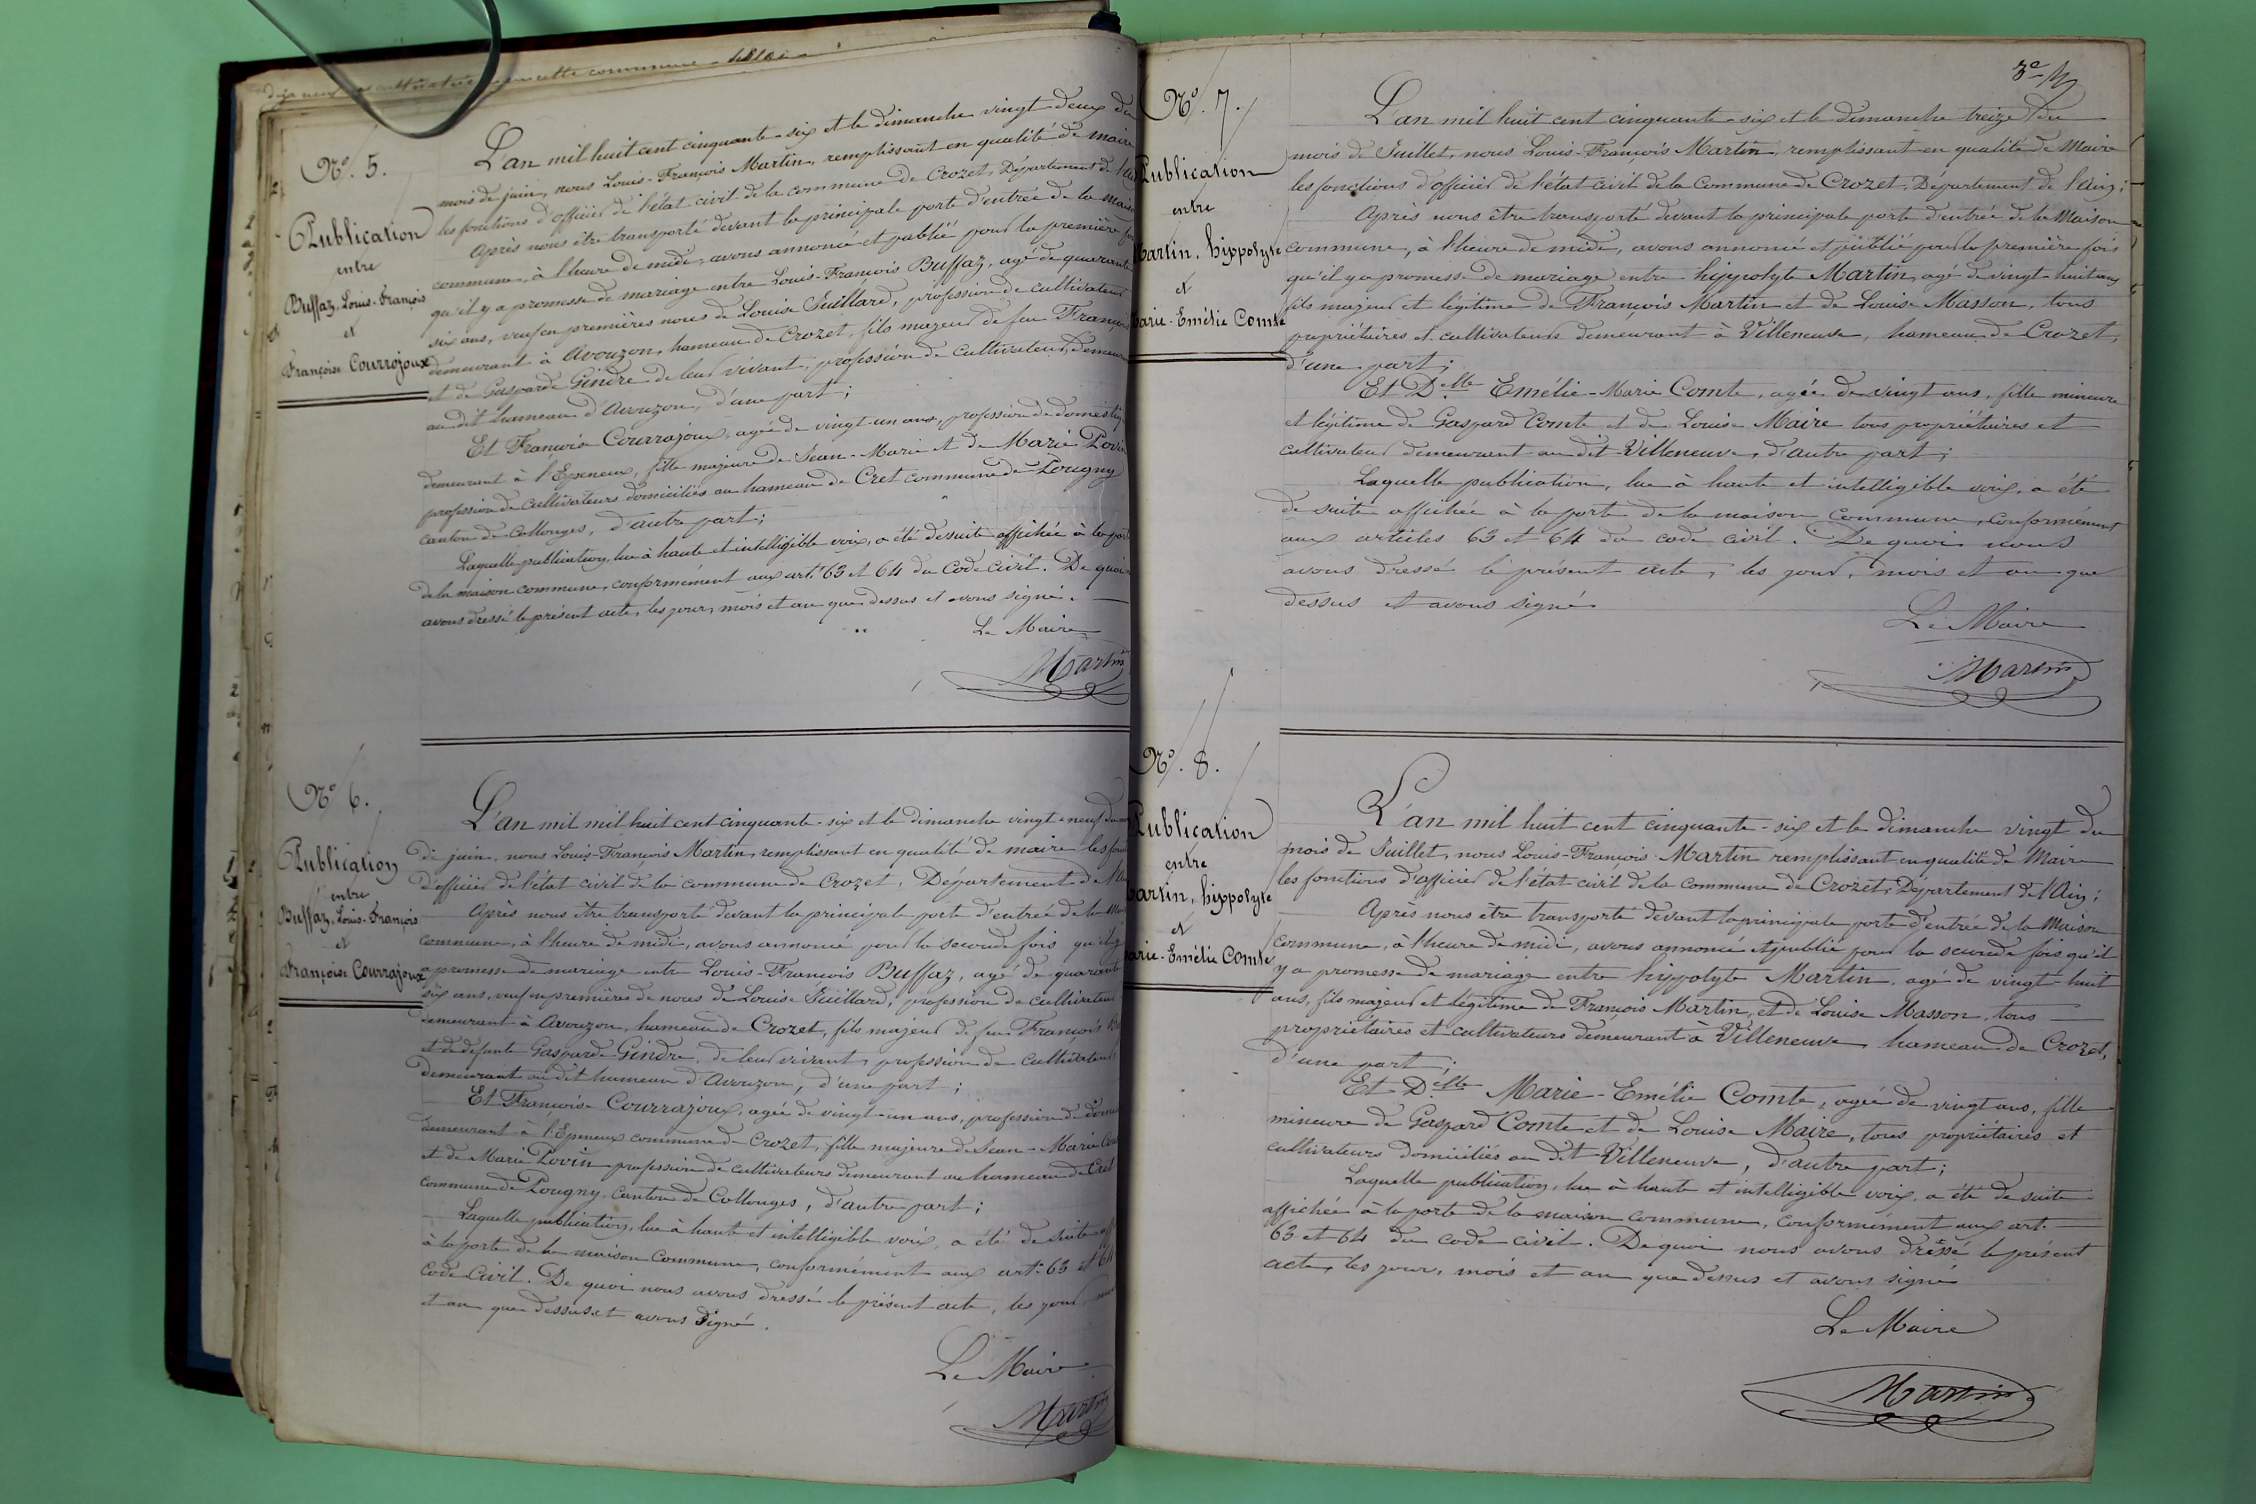 N.o 5.
Publication
entre
Buffaz, Louis-François
et
Françoise Courrajoux
L'an mil huit cent cinquante-six et le dimanche vingt deux du
mois de juin, nous Louis-François Martin, remplissant en qualité de maire
les fonctions d'officier de l'état civil de la commune de Crozet, Département de l'Ain
Après nous être transporté devant la principale porte d'entrée de la maison
commune, à l'heure de midi, avons annoncé et publié pour la première fois
qu'il y a promesse de mariage entre Louis-François Buffaz, agé de quarante
six ans, veuf en premières noces de Louise Juillard, profession de cultivateur
demeurant à Avouzon, hameau de Crozet, fils majeur de feu François
et de Gasparde Gindre de leur vivant, profession de cultivateur, demeurant
au dit hameau d'Avouzon, d'une part;
Et Françoise Courrajoux, agée de vingt-un ans, profession de domestique
demeurant à l'Epeneux, fille majeure de Jean-Marie et de Marie Povin
profession de cultivateurs domiciliés au hameau de Cret commune de Pougny
canton de Collonges, d'autre part;
Laquelle publication, lue à haute et intelligible voix, a été de suite affichée à la porte
de la maison commune, conformément aux art. 63 et 64 du Code civil. De quoi
avons dressé le présent acte, les jour, mois et an que dessus et avons signé.
Le Maire
Martin
N.o 6.
Publication
entre
Buffaz, Louis-François
et
Françoise Courrajoux
L'an mil mil huit cent cinquante-six et le dimanche vingt-neuf du
de juin, nous Louis-François Martin, remplissant en qualité de maire les
d'officier de l'état civil de la commune de Crozet, Département de l'Ain
Après nous être transporté devant la principale porte d'entrée de la
commune, à l'heure de midi, avons annoncé pour la seconde fois qu'il y
a promesse de mariage entre Louis-François Buffaz, agé de quarante
six ans, veuf en premières de noces de Louise Juillard, profession de cultivateur
demeurant à Avouzon, hameau de Crozet, fils majeur de feu François
et de défunte Gasparde Gindre, de leur vivant, profession de cultivateurs
demeurant au dit hameau d'Avouzon, d'une part;
Et Françoise Courrajoux, agée de vingt-un ans, profession de
demeurant à l'Epeneux commune de Crozet, fille majeure de Jean-Marie
et de Marie Povin profession de cultivateurs demeurant au hameau de Cret
commune de Pougny canton de Collonges, d'autre part;
Laquelle publication, lue à haute et intelligible voix, a été de suite
à la porte de la maison Commune, conformément aux art. 63 et 64
Code Civil. De quoi nous avons dressé le présent acte, les jour
et an que dessus et avons signé.
Le Maire
Martin
3e
N.o 7.
Publication
entre
Martin, hippolyte
et
Marie-Emélie Comte
L'an mil huit cent cinquante-six et le dimanche treize du
mois de Juillet, nous Louis-François Martin, remplissant en qualité de Maire
les fonctions d'officier de l'état civil de la Commune de Crozet, Département de l'Ain;
Après nous être transporté devant la principale porte d'entrée de la Maison
commune, à l'heure de midi, avons annoncé et publié pour la première fois
qu'il y a promesse de mariage entre hippolyte Martin, agé de vingt-huit ans
fils majeur et légitime de François Martin et de Louise Masson, tous
propriétaires et cultivateurs demeurant à Villeneuve, hameau de Crozet,
d'une part;
Et D.elle Emélie-Marie Comte, agée de vingt ans, fille mineure
et légitime de Gaspard Comte et de Louise Maire tous propriétaires et
cultivateurs demeurant au dit Villeneuve, d'autre part;
Laquelle publication, lue à haute et intelligible voix, a été
de suite affichée à la porte de la maison commune, conformément
aux articles 63 et 64 du code civil. De quoi nous
avons dressé le présent acte, les jour, mois et an que
dessus et avons signé
Le Maire
Martin
N.o 8.
Publication
entre
Martin, hippolyte
et
Marie-Emélie Comte
L'an mil huit cent cinquante-six et le dimanche vingt du
mois de Juillet, nous Louis-François Martin remplissant en qualité de Maire
les fonctions d'officier de l'état civil de la commune de Crozet, Département de l'Ain;
Après nous être transporté devant la principale porte d'entrée de la Maison
commune, à l'heure de midi, avons annoncé et publié pour la seconde fois qu'il
y a promesse de mariage entre hippolyte Martin, agé de vingt-huit
ans, fils majeur et légitime de François Martin, et de Louise Masson, tous
propriétaires et cultivateurs demeurant à Villeneuve hameau de Crozet,
d'une part;
Et D.elle Marie-Emélie Comte, agée de vingt ans, fille
mineure de Gaspard Comte et de Louise Maire, tous propriétaires et
cultivateurs domiciliés au dit Villeneuve, d'autre part;
Laquelle publication, lue à haute et intelligible voix, a été de suite
affichée à la porte de la maison commune, conformément aux art.
63 et 64 du code civil. De quoi nous avons dressé le présent
acte, les jour, mois et an que dessus et avons signé
Le Maire
Martin